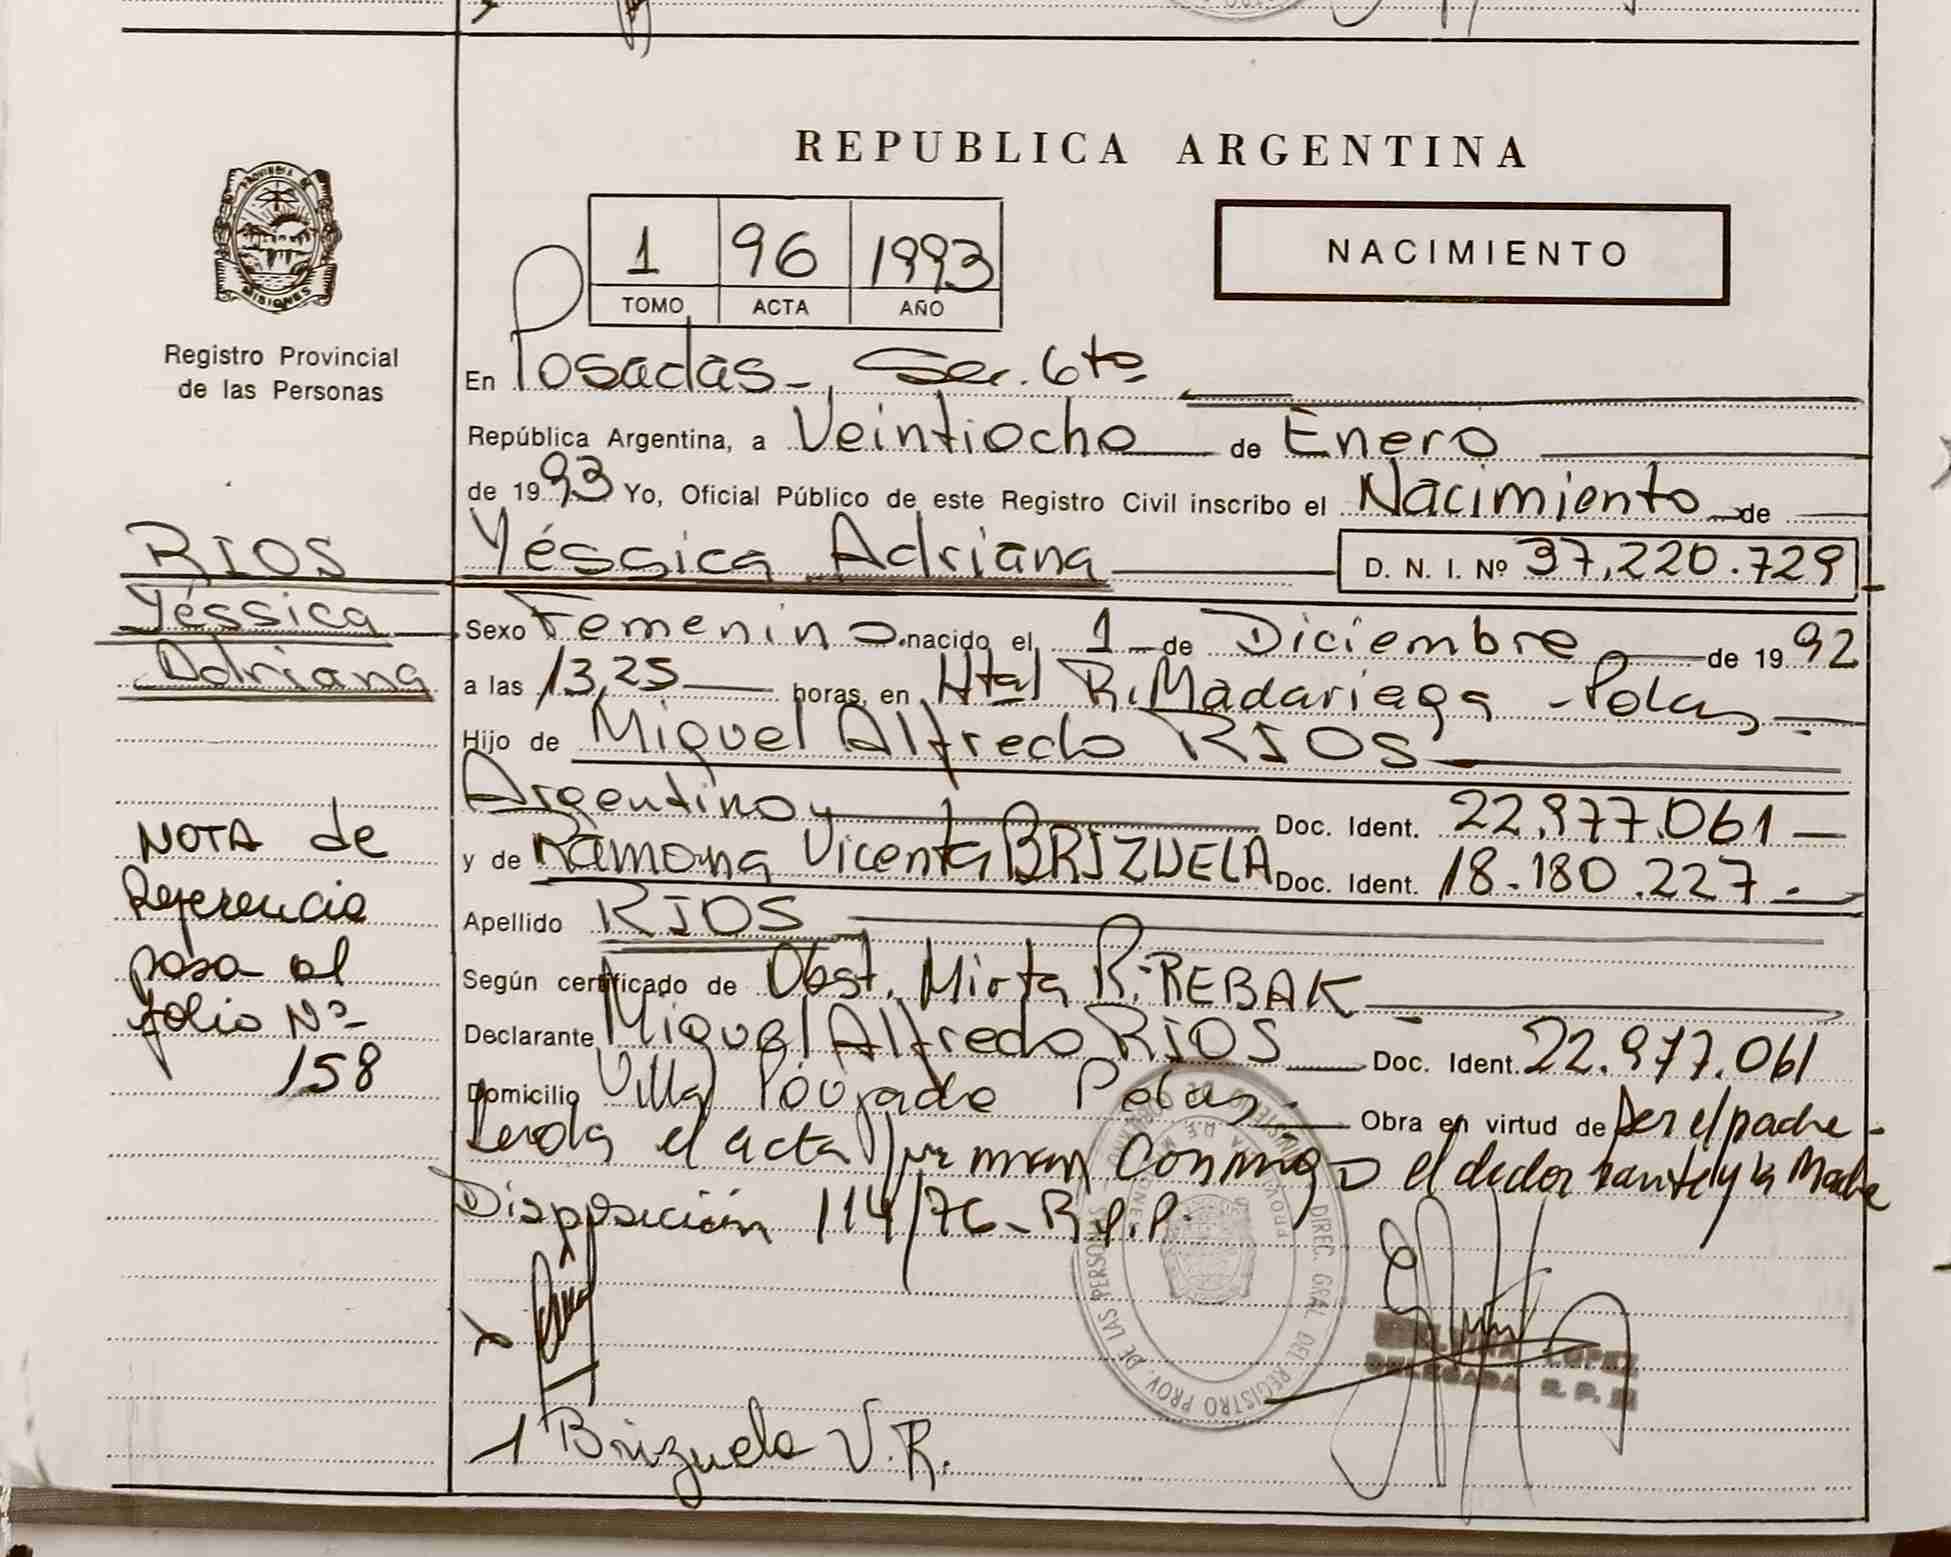 REPUBLICA ARGENTINA
PROVINCIA DE
MISIONES
Registro Provincial
de las Personas
1 96 1993
TOMO ACTA AÑO
NACIMIENTO
En Posadas-, Sec. 6ta
República Argentina, a Veintiocho de Enero
de 1993 Yo, Oficial Público de este Registro Civil inscribo el Nacimiento de
Yéssica Adriana D. N. I. Nº 37.220.729
RIOS
Yéssica
Adriana
Sexo Femenino nacido el 1 de Diciembre de 1992
a las 13,25 horas, en Htal R. Madariaga - Pdas
Hijo de Miguel Alfredo RIOS
Argentino Doc. Ident. 22.977.061
y de Ramona Vicenta BRIZUELA Doc. Ident. 18.180.227.-
Apellido RIOS
Según certificado de Obst. Mirta R. REBAK
Declarante Miguel Alfredo RIOS Doc. Ident. 22.977.061
Domicilio Villa Poujade Pdas. Obra en virtud de Ser el padre.
Leida el acta firman conmigo el declarante y la Madre
Disposición 114/76-R.P.P.
NOTA de
Referencia
pasa al
folio Nº
158
DIREC. GRAL. DEL REGISTRO PROV. DE LAS PERSONAS
LOPEZ
DELEGADA R. P.
Brizuela V.R.